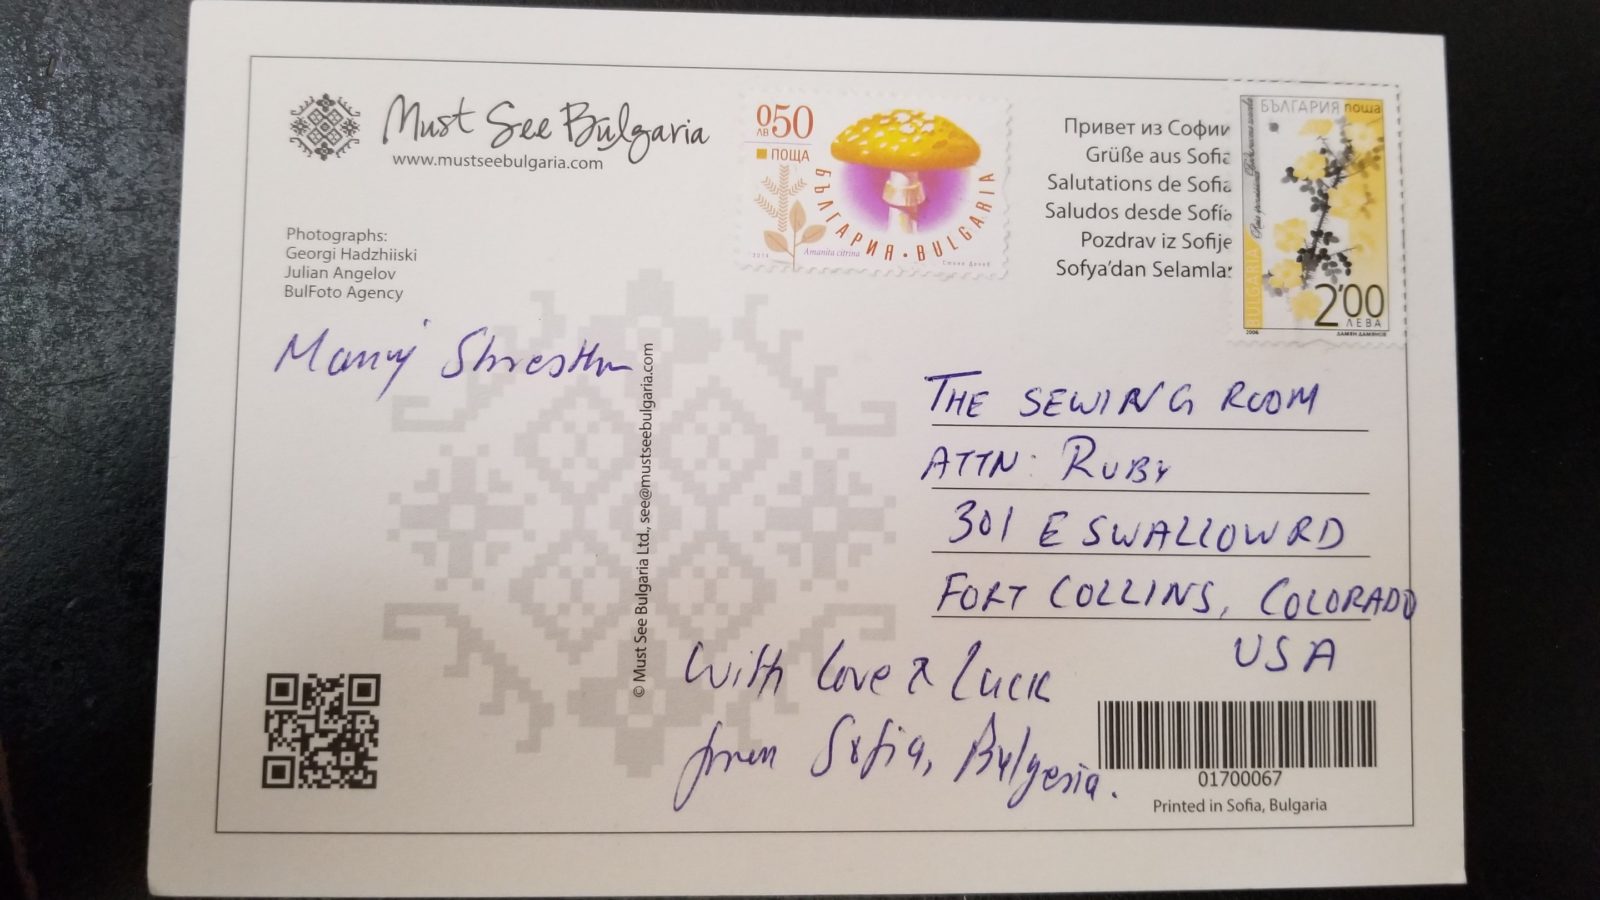 Must See Bulgaria
www.mustseebulgaria.com
Photographs:
Georgi Hadzhiiski
Julian Angelov
BulFoto Agency
0.50
ЛВ
ПОЩА
БЪЛГАРИЯ • BULGARIA
Amanita citrina
Привет из Софии
Grüße aus Sofia
Salutations de Sofia
Saludos desde Sofía
Pozdrav iz Sofije
Sofya'dan Selamlar
БЪЛГАРИЯ поща
BULGARIA
2'00
ЛЕВА
2006
ДАМЯН ДАМЯНОВ
Shrestha
© Must See Bulgaria Ltd., see@mustseebulgaria.com
THE SEWING ROOM
ATTN: RUBY
301 E SWALLOW RD
FORT COLLINS, COLORADO
USA
With love & Luck
from Sofia, Bulgaria.
01700067
Printed in Sofia, Bulgaria